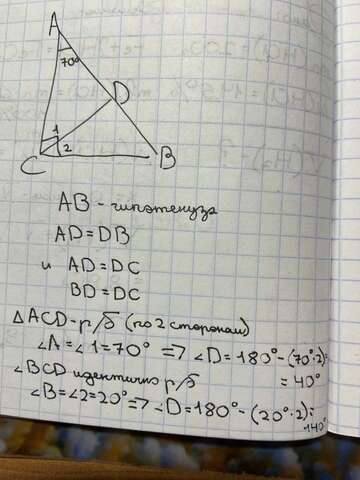 A
70°
D
1
2
C
B
AB - гипотенуза
AD = DB
и AD = DC
BD = DC
△ACD - р/б (по 2 сторонам)
∠A = ∠1 = 70° => ∠D = 180° - (70°·2) =
= 40°
∠BCD идентично р/б
∠B = ∠2 = 20° => ∠D = 180° - (20°·2) =
140°